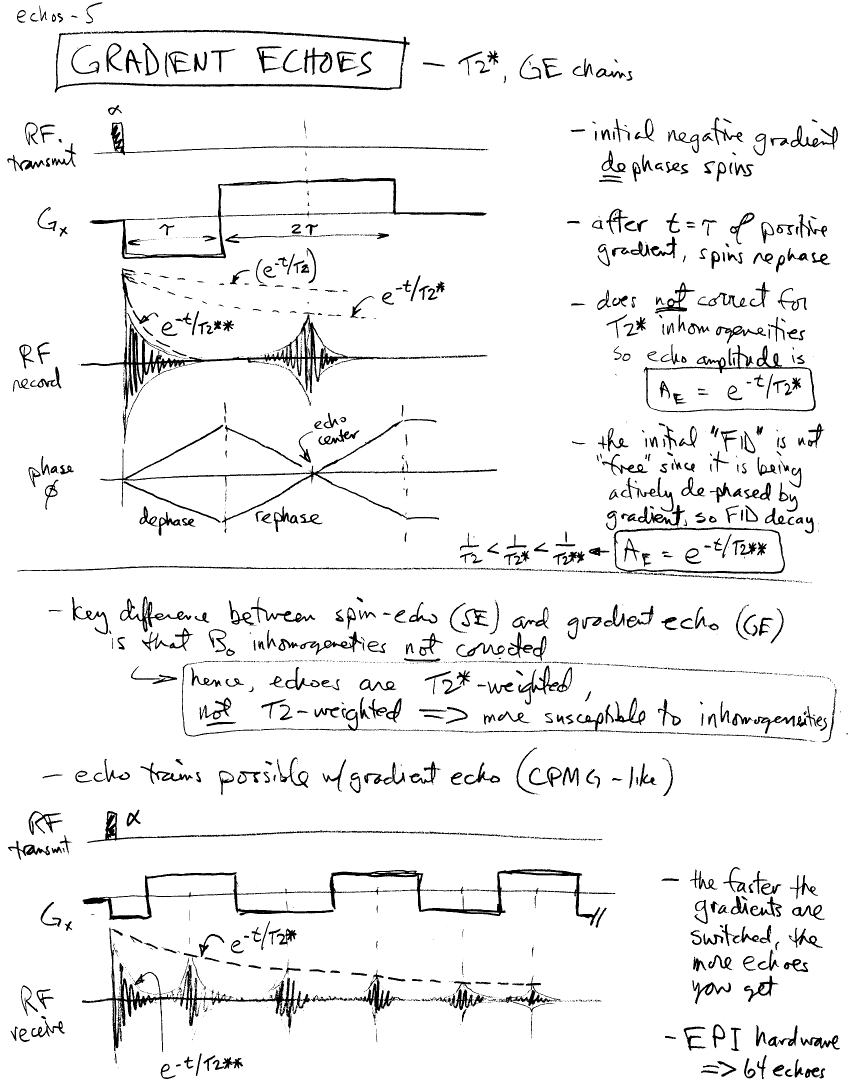 echos-5
GRADIENT ECHOES - T2*, GE chains
α
RF.
transmit
Gx
τ
2τ
(e^-t/T2)
e^-t/T2*
e^-t/T2**
RF
record
echo
center
phase
φ
dephase
rephase
- initial negative gradient
dephases spins
- after t=τ of positive
gradient, spins rephase
- does not correct for
T2* inhomogeneities
so echo amplitude is
A_E = e^-t/T2*
- the initial "FID" is not
"free" since it is being
actively de-phased by
gradient, so FID decay
1/T2 < 1/T2* < 1/T2** ← A_E = e^-t/T2**
- key difference between spin-echo (SE) and gradient echo (GE)
is that B₀ inhomogeneities not corrected
↳ hence, echoes are T2*-weighted,
not T2-weighted => more susceptible to inhomogeneities
- echo trains possible w/gradient echo (CPMG-like)
RF
transmit
α
Gx
e^-t/T2*
RF
receive
e^-t/T2**
- the faster the
gradients are
switched, the
more echoes
you get
- EPI hardware
=> 64 echoes